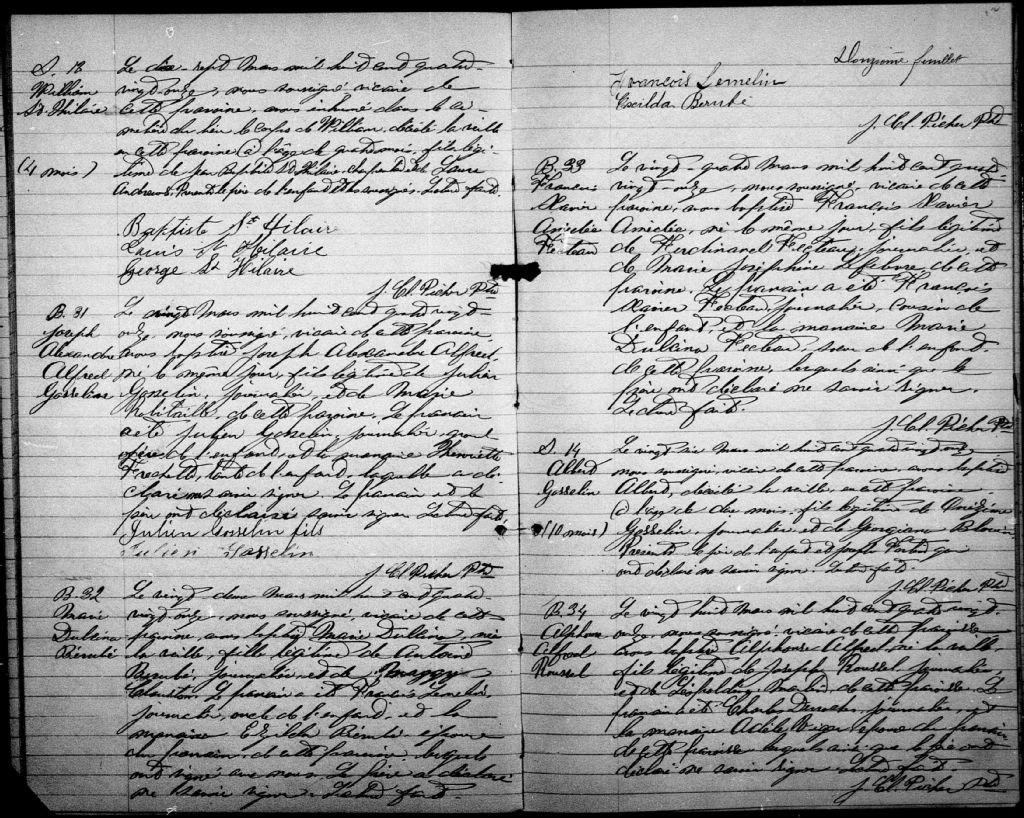 S. 13
William
St Hilaire
(4 mois)
Le dix-sept Mars mil huit cent quatre-
vingt-onze, nous soussigné vicaire de
cette paroisse, avons inhumé dans le ci-
metière du lieu le corps de William, décédé la veille
en cette paroisse à l'âge de quatre mois, fils légi-
time de Baptiste St Hilaire, charpentier et de Laure
Andrews. Présents le père de l'enfant et les soussignés. Lecture faite.
Baptiste St Hilair
Louis St Hilaire
George St Hilaire
J. Cl. Picher Ptre
B. 31
Joseph
Alexandre
Alfred
Gosselin
Le vingt Mars mil huit cent quatre vingt-
onze, nous soussigné, vicaire de cette paroisse
avons baptisé Joseph Alexandre Alfred,
né le même jour, fils légitime de Julien
Gosselin, journalier, et de Marie
Robitaille de cette paroisse. Le parrain
a été Julien Gosselin, journalier, grand
père de l'enfant, et la marraine Henriette
Frechette, tante de l'enfant, laquelle a dé-
claré ne savoir signer. Le parrain et le
père ont déclaré savoir signer. Lecture faite.
Julien Gosselin fils
Julien Gosselin
J. Cl. Picher Ptre
B. 32
Marie
Dulkina
Bérubé
Le vingt deux Mars mil huit cent quatre-
vingt-onze, nous soussigné, vicaire de cette
paroisse, avons baptisé Marie Dulkina, née
la veille, fille légitime de Antoine
Berubé, journalier, et de
Le parrain a été François Lemelin,
journalier, oncle de l'enfant, et la
marraine Exilda Bérubé épouse
du parrain, de cette paroisse, lesquels
ont signé avec nous. Le père a déclaré
ne savoir signer. Lecture faite.
Douzième feuillet
Francois Lemelin
Exilda Berubé
J. Cl. Picher Ptre
B. 33
Francois
Xavier
Amédée
Fecteau
Le vingt-quatre Mars mil huit cent quatre
vingt-onze, nous soussigné, vicaire de cette
paroisse, avons baptisé François Xavier
Amédée, né le même jour, fils légitime
de Ferdinand Fecteau, journalier, et
de Marie Joséphine Lefebvre de cette
paroisse. Le parrain a été François
Xavier Fecteau, journalier, cousin de
l'enfant, et la marraine Marie
Dulkina Fecteau, soeur de l'enfant.
de cette paroisse, lesquels ainsi que le
père ont déclaré ne savoir signer.
Lecture faite.
J. Cl. Picher Ptre
S. 14
Albert
Gosselin
(10 mois)
Le vingt six Mars mil huit cent quatre vingt onze
nous soussigné, vicaire de cette paroisse, avons
Albert, décédé la veille, en cette paroisse
à l'âge de dix mois, fils légitime de
Gosselin, journalier, et de Georgiana Blouin
Présents le père de l'enfant et Joseph qui
ont déclaré ne savoir signer. Lecture faite.
J. Cl. Picher Ptre
B. 34
Alphonse
Alfred
Roussel
Le vingt huit Mars mil huit cent quatre vingt-
onze, nous soussigné, vicaire de cette paroisse
avons baptisé Alphonse Alfred, né la veille,
fils légitime de Joseph Roussel journalier,
et de Léopoldine de cette paroisse. Le
parrain a été Charles journalier, et
la marraine Adèle épouse du parrain
de cette paroisse lesquels ainsi que le père ont
déclaré ne savoir signer. Lecture faite.
J. Cl. Picher Ptre